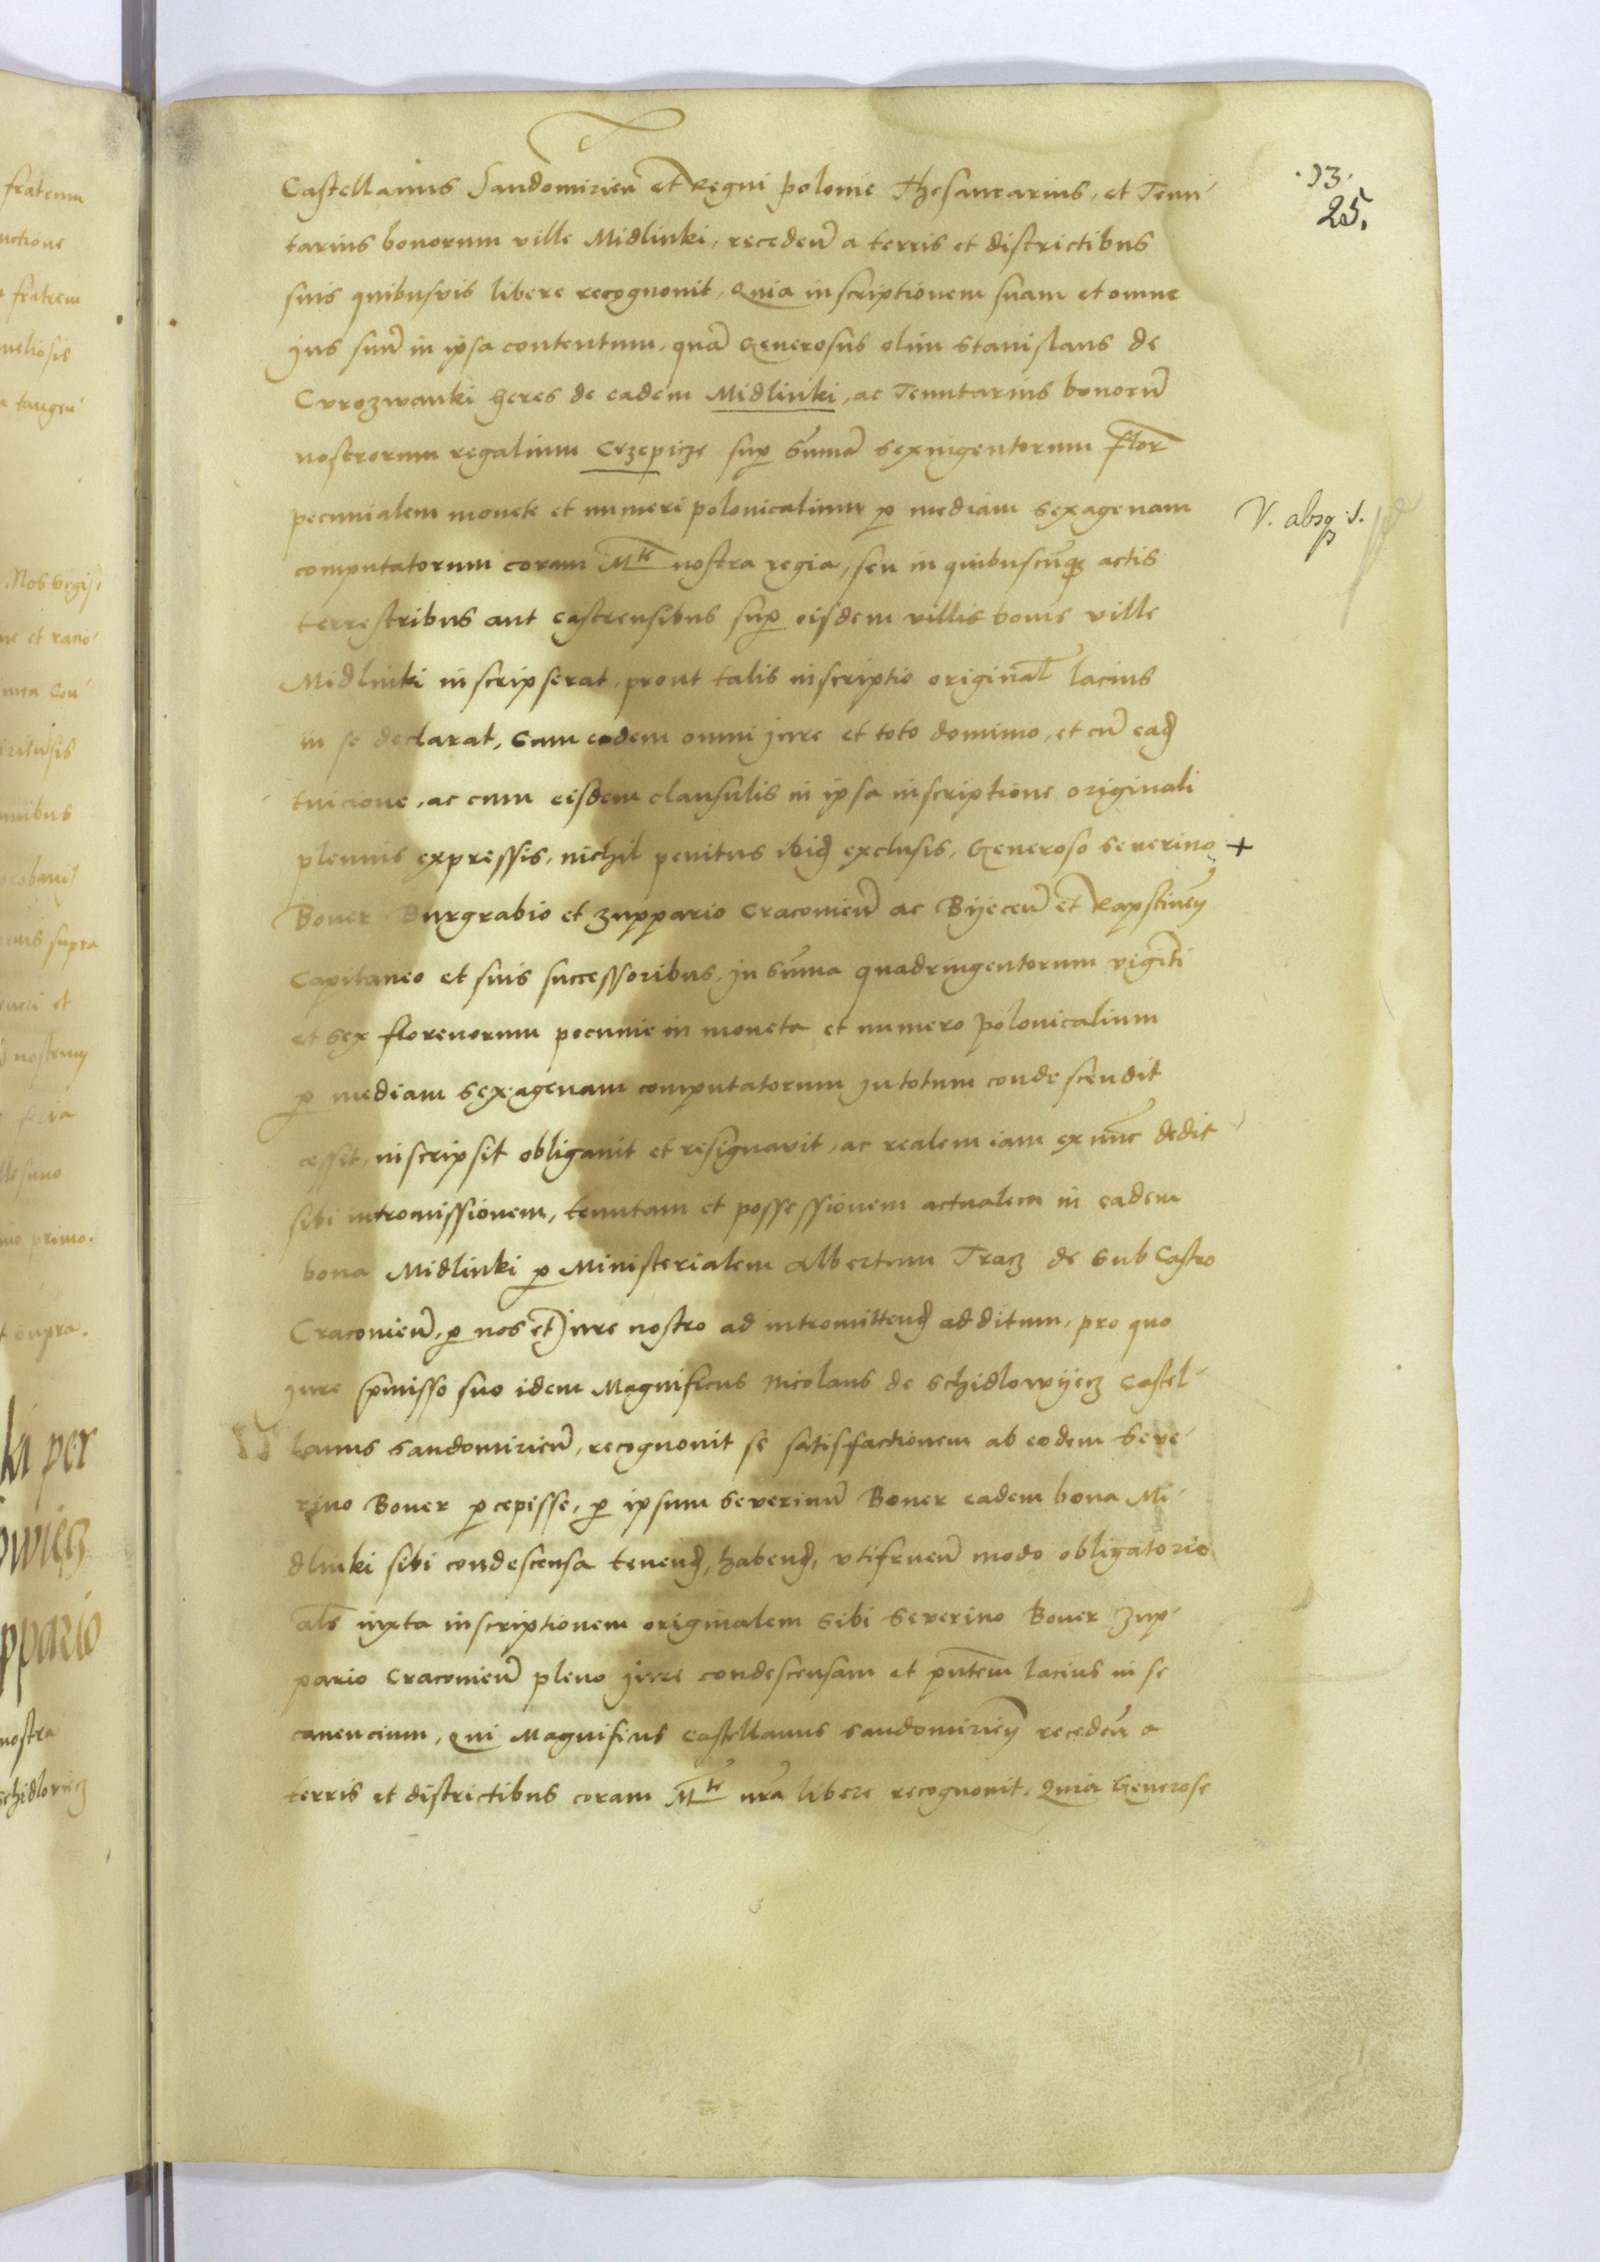 .13.
25.
Castellanus Sandomirien̄ et Regni polonie Thesaurarius, et Tenu-
tarius bonorum ville Midlinki, receden̄ a terris et districtibus
suis quibusvis libere recognouit, Quia inscriptionem suam et omne
jus suū in ipsa contentum, quā Generosus olim Stanislaus de
Curozwanki heres de eadem Midlinki, ac Tenutarius bonorū
nostrorum regalium Crzepicze sup sūmā sexingentorum flor
pecunialem monete et numeri polonicalium p mediam sexagenam
V. absq. s.
computatorum coram Mte nostra regia, seu in quibuscūq actis
terrestribus aut castrensibus sup eisdem villis bonis ville
Midlinki inscripserat, prout talis inscriptio original lacius
in se declarat, Cum eodem omni jure et toto dominio, et cū ead
tuicione, ac cum eisdem clausulis in ipsa inscriptione originali
plennis expressis, nichil penitus ibid exclusis, Generoso Severino +
Boner Burgrabio et zuppario Cracouien̄ ac Bijecen̄ et Rapstiney
Capitaneo et suis successoribus, in sūma quadringentorum viginti
et sex florenorum pecunie in moneta et numero polonicalium
p mediam sexagenam computatorum in totum condescendit
cessit, inscripsit obligauit et resignavit, ac realem iam ex nūc dedit
sibi intromissionem, tenutam et possessionem actualem in eadem
bona Midlinki p Ministerialem Albertum Tracz de sub Castro
Cracouien̄, p nos et jure nostro ad intromittend additum, pro quo
jure pmisso suo idem Magnificus Nicolaus de Schidlowyecz Castel-
lanus Sandomirien̄, recognouit se satisfactionem ab eodem Seve-
rino Boner pcepisse, p ipsum Severinū Boner eadem bona Mi-
dlinki sibi condescensa tenend, habend, vtifruen̄ modo obligatorio
als iuxta inscriptionem originalem sibi Severino Boner zup-
pario Cracouien̄ pleno jure condescensam et pntem lacius in se
canencium, Qui Magnificus Castellanus Sandomirien̄ receden̄ a
terris et districtibus coram Mte nrā libere recognouit, Quia Generose